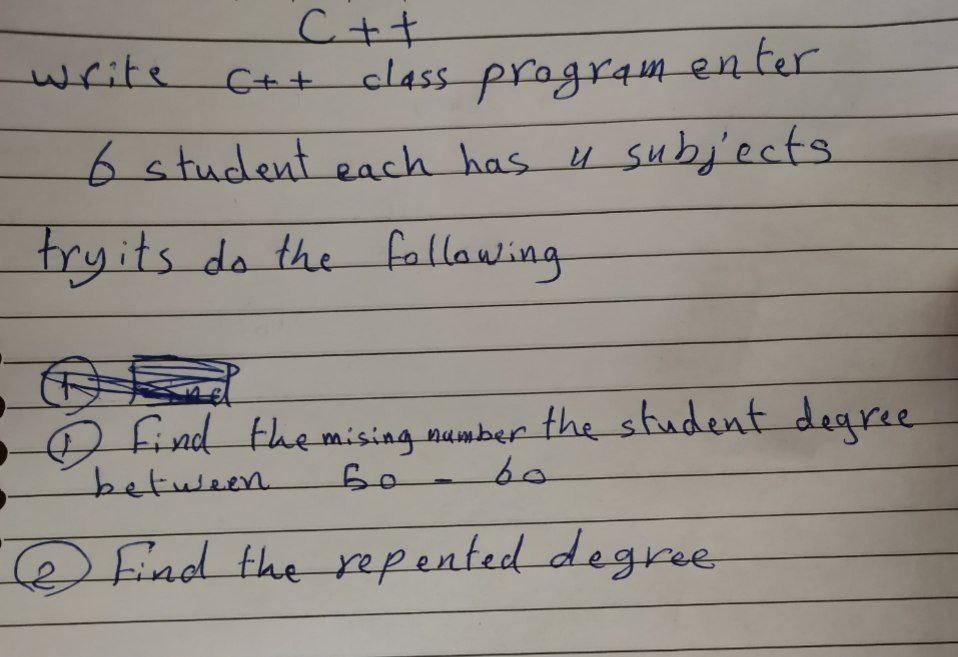 C++
write C++ class program enter
6 student each has 4 subjects
try its do the following
① Find the mising number the student degree
between 50 - 60
② Find the repented degree